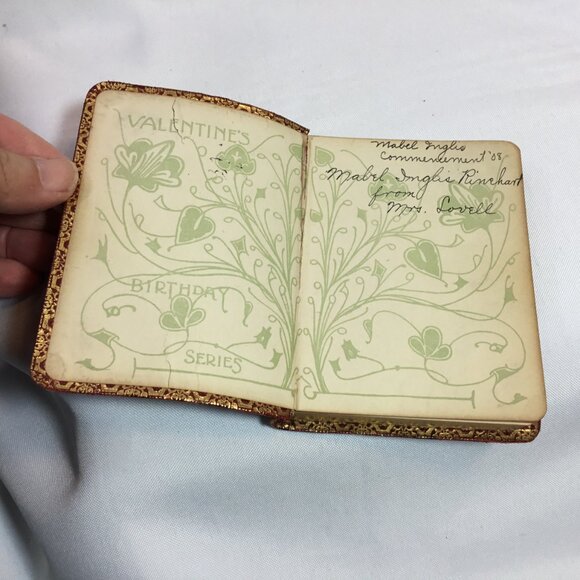 VALENTINE'S
BIRTHDAY
SERIES
Mabel Inglis
Commencement '08
Mabel Inglis Rinehart
from
Mrs. Lovell